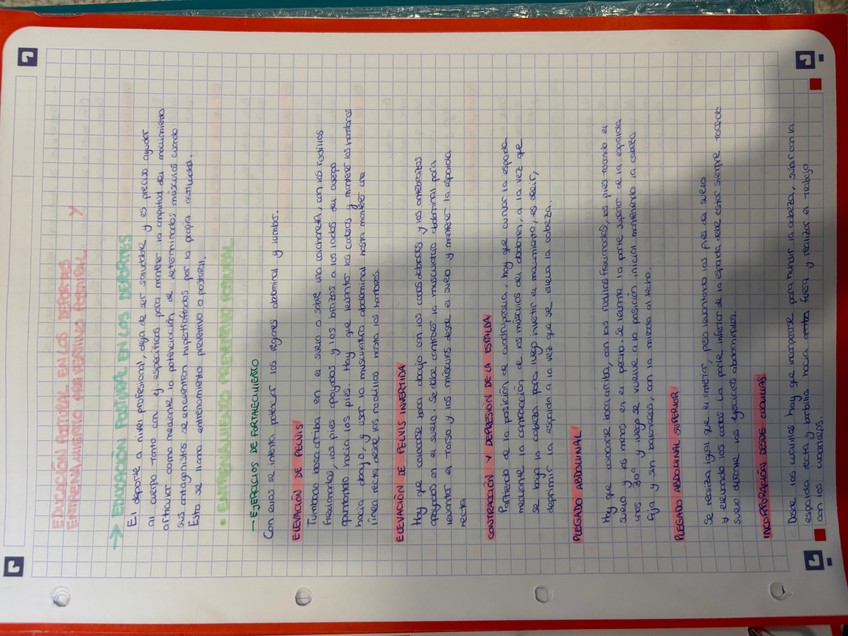 EDUCACIÓN POSTURAL EN LOS DEPORTES Y
ENTRENAMIENTO PREVENTIVO POSTURAL
→ EDUCACIÓN POSTURAL EN LOS DEPORTES
El deporte a nivel profesional, deja de ser saludable y es preciso ayudar
al cuerpo tanto con y específicas para mantener la amplitud del movimiento
articular como mediante la potenciación de determinados músculos cuando
sus antagonistas se encuentran hipertrofiados por la propia actividad.
Esto se llama entrenamiento preventivo o postural.
• ENTRENAMIENTO PREVENTIVO POSTURAL
→ EJERCICIOS DE FORTALECIMIENTO
Con ellos se intenta potenciar las regiones abdominal y lumbar.
ELEVACIÓN DE PELVIS
Tumbado boca arriba en el suelo o sobre una colchoneta, con las rodillas
flexionadas, los pies apoyados y los brazos a los lados del cuerpo
apuntando hacia los pies. Hay que levantar las caderas y mantener los hombros
hacia abajo, y usar la musculatura abdominal hasta mantener una
línea recta desde las rodillas hasta los hombros.
ELEVACIÓN DE PELVIS INVERTIDA
Hay que colocarse boca abajo con los codos doblados y los antebrazos
apoyados en el suelo. Se debe contraer la musculatura abdominal para
levantar el torso y los muslos desde el suelo y mantener la espalda
recta.
CONTRACCIÓN Y DEPRESIÓN DE LA ESPALDA
Partiendo de la posición de cuadrupedia, hay que curvar la espalda
mediante la contracción de los músculos del abdomen, a la vez que
se baja la cabeza para luego invertir el movimiento, es decir,
deprimir la espalda a la vez que se eleva la cabeza.
PLEGADO ABDOMINAL
Hay que colocarse boca arriba, con las rodillas flexionadas, los pies tocando el
suelo y las manos en el pecho. Se levanta la parte superior de la espalda
unos 30° y luego se vuelve a la posición inicial manteniendo la cabeza
fija y sin balanceos, con la mirada al techo.
PLEGADO ABDOMINAL SUPERIOR
Se realiza igual que el anterior, pero levantando los pies del suelo
y elevando los codos. La parte inferior de la espalda debe estar siempre tocando
suelo durante los ejercicios abdominales.
INCORPORACIÓN DESDE CUCLILLAS
Desde las cuclillas hay que incorporarse para hundir la cabeza, subir con la
espalda recta y barbilla hacia fuera y realizar el trabajo
con los cuádriceps.